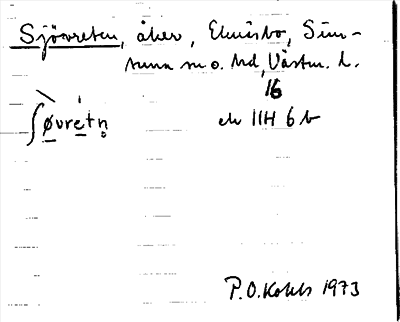 Sjövreten, åker, Elmsbo, Sim-
tuna sn o. hd, Västm. l.
16
ʃøvretn̥ ek 11H 6 b
P.O. Kohls 1973